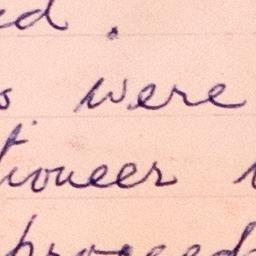 ed.
were
tioneer
proceed